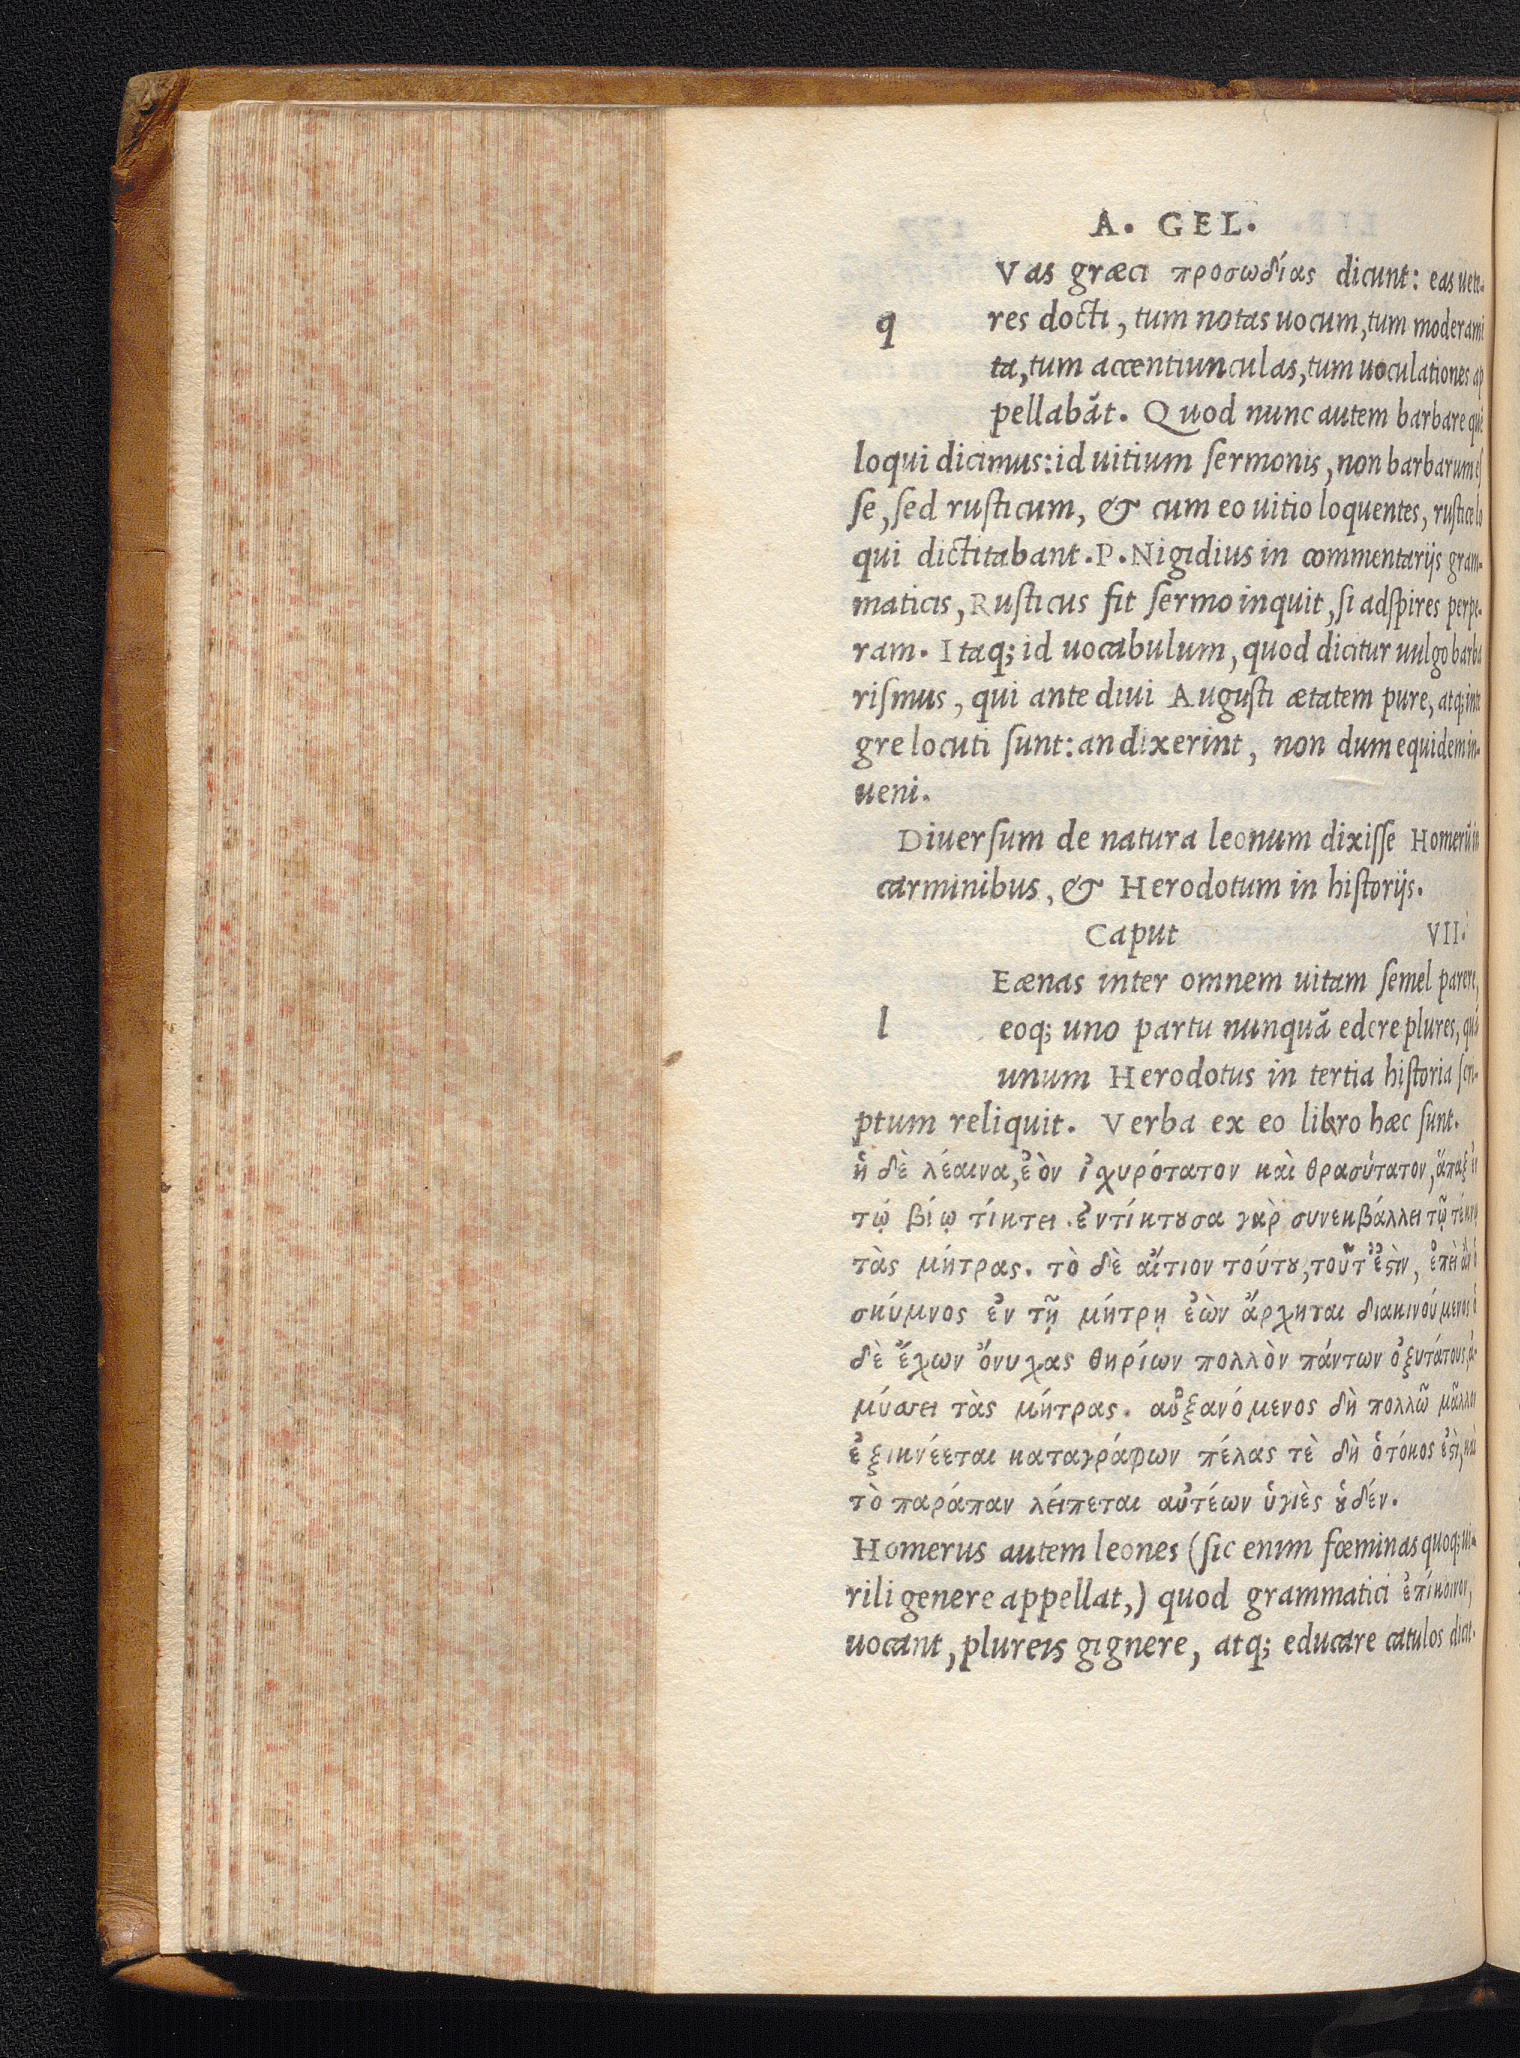 A. GEL.
Vas græci προσωδίας dicunt: eas uete-
q
res docti, tum notas uocum, tum moderami
ta, tum accentiunculas, tum uoculationes ap
pellabāt. Quod nunc autem barbare
loqui dicimus: id uitium ſermonis, non barbarum eſ
ſe, ſed ruſticum, & cum eo uitio loquentes, ruſtice lo
qui dictitabant. P. Nigidius in commentarijs gram-
maticis, Ruſticus fit ſermo inquit, ſi adſpires perpe-
ram. Itaq; id uocabulum, quod dicitur uulgo barba
riſmus, qui ante diui Auguſti ætatem pure, atq; inte
gre locuti ſunt: an dixerint, non dum equidem in-
ueni.
Diuerſum de natura leonum dixiſſe Homerū in
carminibus, & Herodotum in hiſtorijs.
Caput VII.
Eænas inter omnem uitam ſemel parere,
l
eoq; uno partu nunquā edere plures, quā
unum Herodotus in tertia hiſtoria ſcri-
ptum reliquit. Verba ex eo libro hæc ſunt.
ἡ δὲ λέαινα, ἐὸν ἰχυρότατον καὶ θρασύτατον, ἅπαξ ἐν
τῷ βίῳ τίκτει. ἐντίκτουσα γὰρ συνεκβάλλει τῷ τέκνῳ
τὰς μήτρας. τὸ δὲ αἴτιον τούτου, τοῦτ ἐστὶν, ἐπεὶ ἂν ὁ
σκύμνος ἐν τῇ μήτρῃ ἐὼν ἄρχηται διακινούμενος ὁ
δὲ ἔχων ὄνυχας θηρίων πολλὸν πάντων ὀξυτάτους, ἀ-
μύσσει τὰς μήτρας. αὐξανόμενος δὴ πολλῶ μᾶλλον
ἐξικνέεται καταγράφων πέλας τὲ δὴ ὁ τόκος ἐστὶ, καὶ
τὸ παράπαν λείπεται αὐτέων ὑγιὲς οὐδέν.
Homerus autem leones (ſic enim fœminas quoq; ui-
rili genere appellat,) quod grammatici ἐπίκοινον,
uocant, plureis gignere, atq; educare catulos dicit.